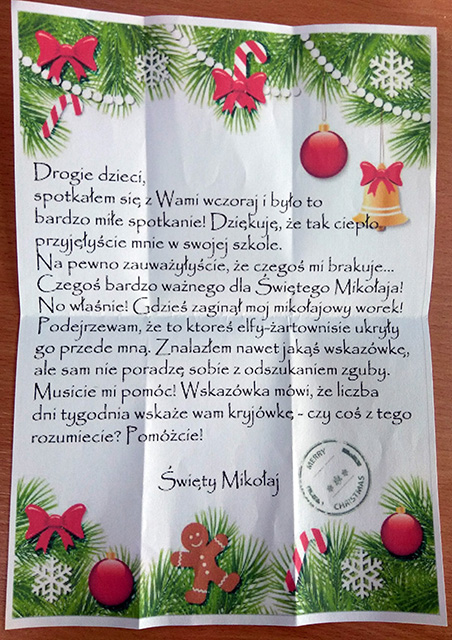 Drogie dzieci,
spotkałem się z Wami wczoraj i było to
bardzo miłe spotkanie! Dziękuję, że tak ciepło
przyjęłyście mnie w swojej szkole.
Na pewno zauważyłyście, że czegoś mi brakuje...
Czegoś bardzo ważnego dla Świętego Mikołaja!
No właśnie! Gdzieś zaginął moj mikołajowy worek!
Podejrzewam, że to ktoreś elfy-żartownisie ukryły
go przede mną. Znalazłem nawet jakąś wskazówkę,
ale sam nie poradzę sobie z odszukaniem zguby.
Musicie mi pomóc! Wskazówka mówi, że liczba
dni tygodnia wskaże wam kryjówkę - czy coś z tego
rozumiecie? Pomóżcie!
Święty Mikołaj
MERRY
CHRISTMAS